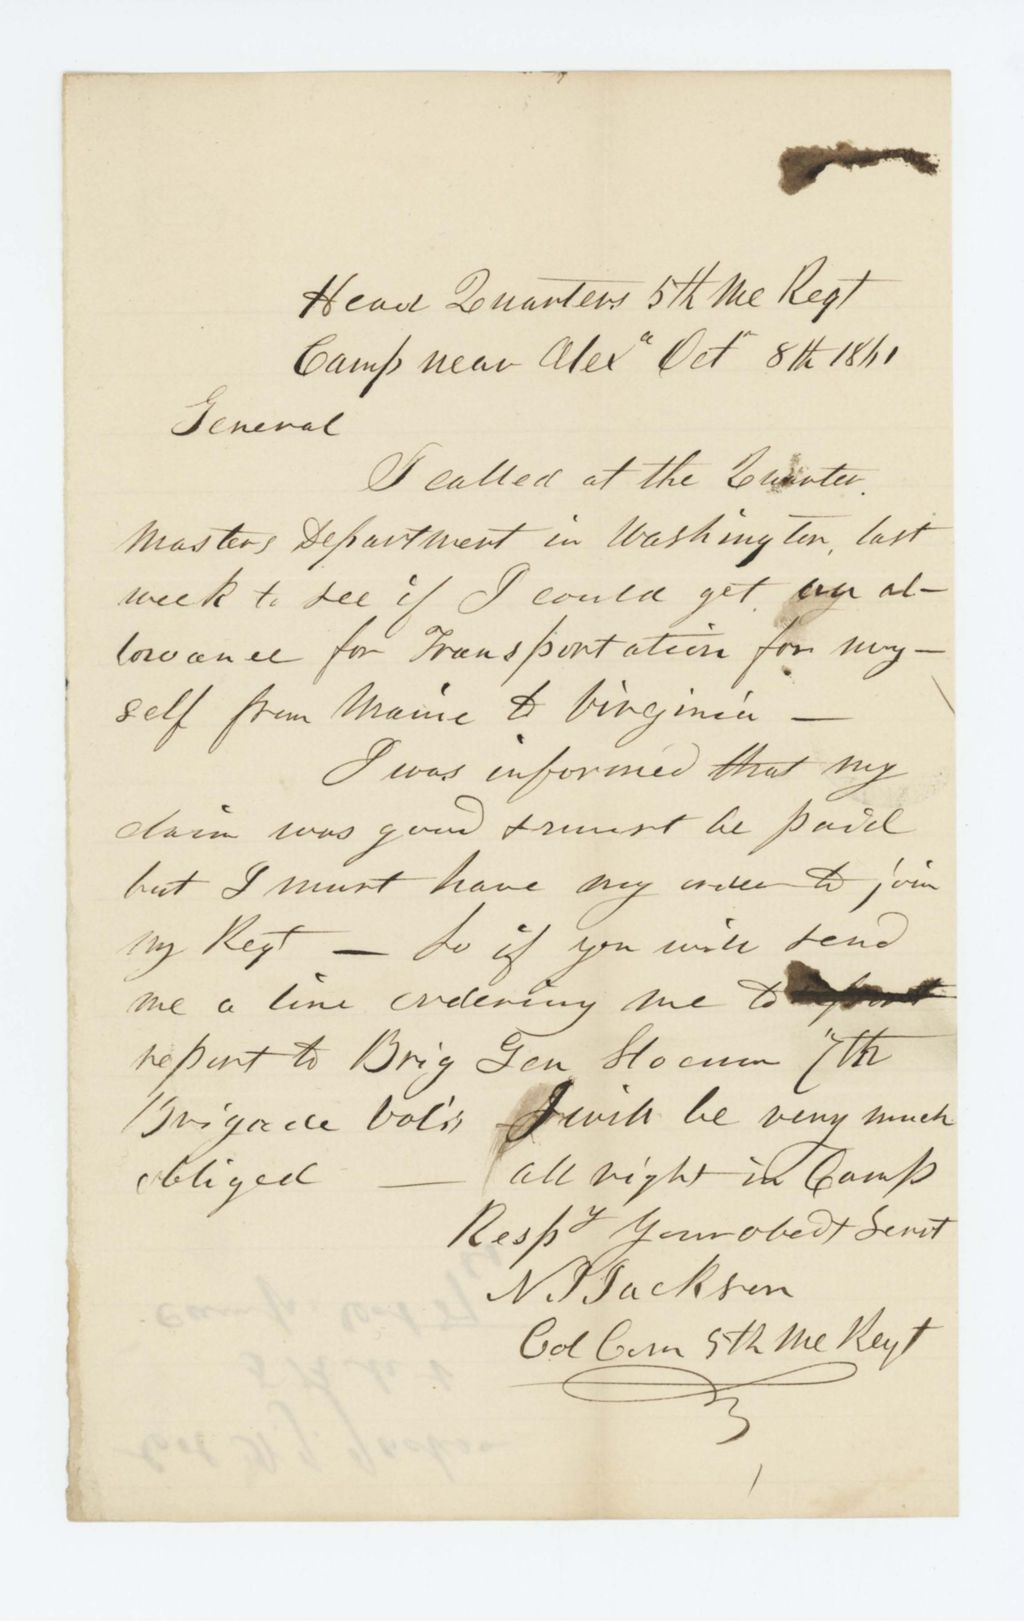 Head Quarters 5th Me Regt
Camp near Alexa Octr 8th 1861
General
I called at the Quarter
Masters Department in Washington, last
week to see if I could get an al-
lowance for Transportation for my-
self from Maine to Virginia —
I was informed that my
claim was good & must be paid
but I must have my order to join
my Regt — So if you will send
me a line ordering me to report
report to Brig Gen Slocum 7th
Brigade Vol's I will be very much
obliged — all right in Camp
Respy Your obedt Servt
N J Jackson
Col Com 5th Me Regt